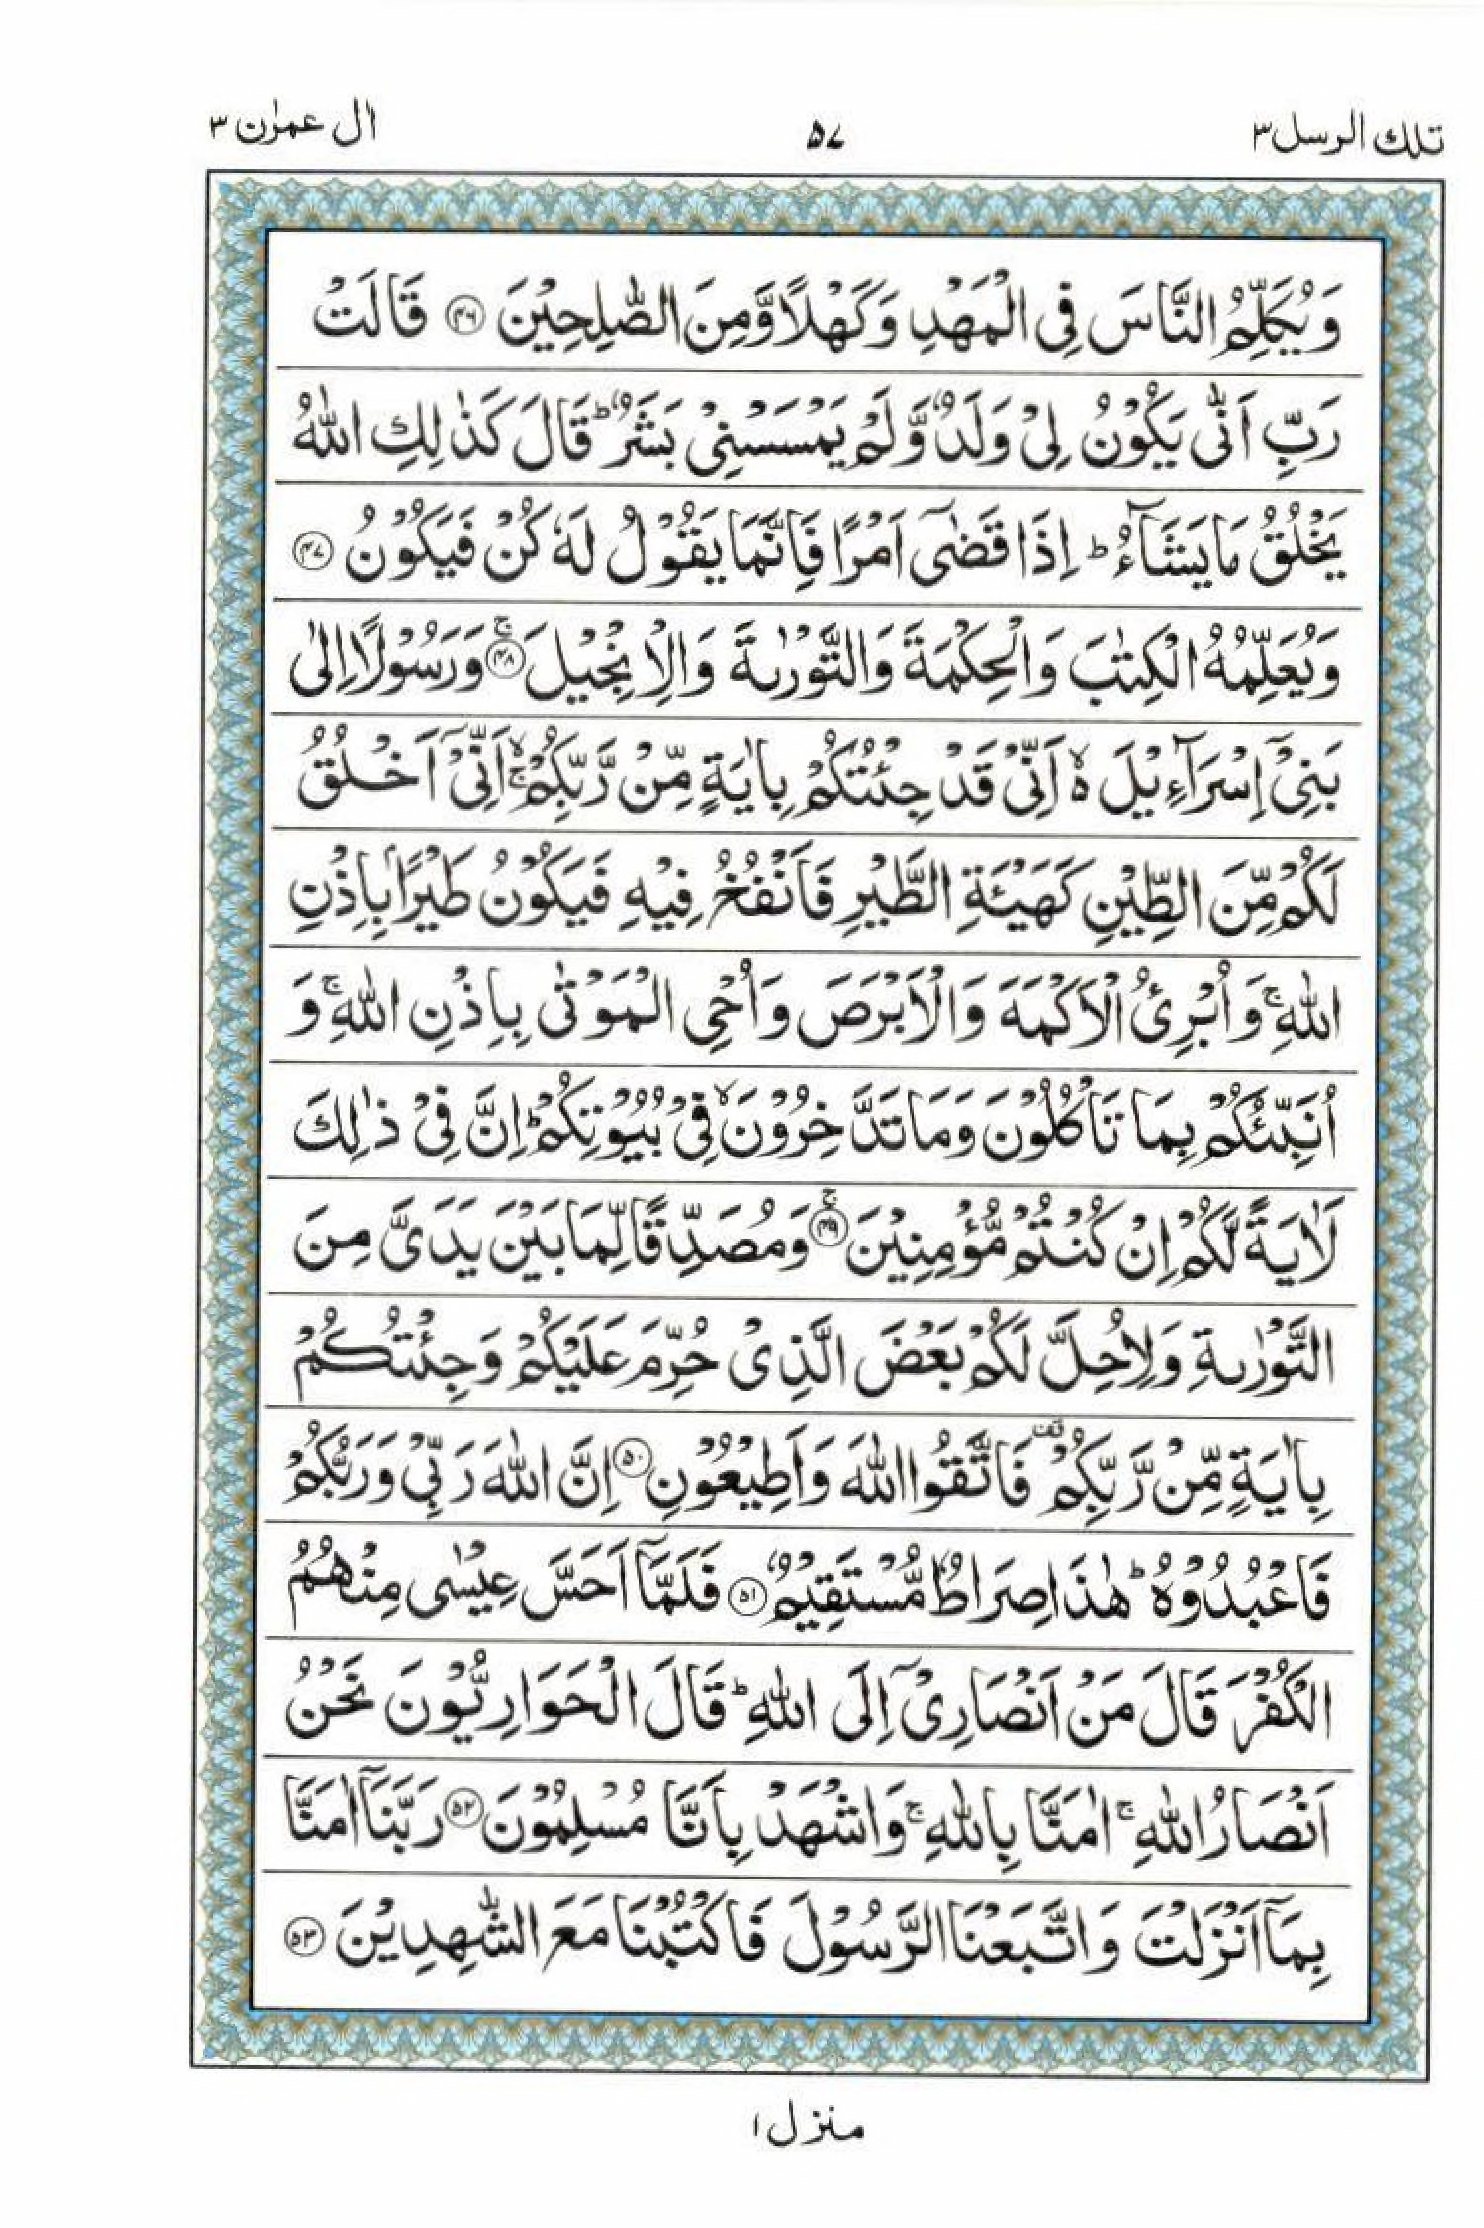 تلك الرسل ٣
٥٧
اٰل عمرٰن ٣
وَيُكَلِّمُ النَّاسَ فِى الْمَهْدِ وَكَهْلًا وَّمِنَ الصّٰلِحِيْنَ ۝۴۶ قَالَتْ
رَبِّ اَنّٰى يَكُوْنُ لِىْ وَلَدٌ وَّلَمْ يَمْسَسْنِىْ بَشَرٌ ؕ قَالَ كَذٰلِكِ اللّٰهُ
يَخْلُقُ مَا يَشَآءُ ؕ اِذَا قَضٰٓى اَمْرًا فَاِنَّمَا يَقُوْلُ لَهٗ كُنْ فَيَكُوْنُ ۝۴۷
وَيُعَلِّمُهُ الْكِتٰبَ وَالْحِكْمَةَ وَالتَّوْرٰىةَ وَالْاِنْجِيْلَ ۝۴۸ ۚ وَرَسُوْلًا اِلٰى
بَنِىْٓ اِسْرَآءِيْلَ ۙ۬ اَنِّىْ قَدْ جِئْتُكُمْ بِاٰيَةٍ مِّنْ رَّبِّكُمْ ۙۚ اَنِّىْٓ اَخْلُقُ
لَكُمْ مِّنَ الطِّيْنِ كَهَيْـَٔةِ الطَّيْرِ فَاَنْفُخُ فِيْهِ فَيَكُوْنُ طَيْرًۢا بِاِذْنِ
اللّٰهِ ۚ وَاُبْرِئُ الْاَكْمَهَ وَالْاَبْرَصَ وَاُحْىِ الْمَوْتٰى بِاِذْنِ اللّٰهِ ۚ وَ
اُنَبِّئُكُمْ بِمَا تَاْكُلُوْنَ وَمَا تَدَّخِرُوْنَ ۙ فِىْ بُيُوْتِكُمْ ؕ اِنَّ فِىْ ذٰلِكَ
لَاٰيَةً لَّكُمْ اِنْ كُنْتُمْ مُّؤْمِنِيْنَ ۝۴۹ ۚ وَمُصَدِّقًا لِّمَا بَيْنَ يَدَىَّ مِنَ
التَّوْرٰىةِ وَلِاُحِلَّ لَكُمْ بَعْضَ الَّذِىْ حُرِّمَ عَلَيْكُمْ وَجِئْتُكُمْ
بِاٰيَةٍ مِّنْ رَّبِّكُمْ قف فَاتَّقُوا اللّٰهَ وَاَطِيْعُوْنِ ۝۵۰ اِنَّ اللّٰهَ رَبِّىْ وَرَبُّكُمْ
فَاعْبُدُوْهُ ؕ هٰذَا صِرَاطٌ مُّسْتَقِيْمٌ ۝۵۱ فَلَمَّآ اَحَسَّ عِيْسٰى مِنْهُمُ
الْكُفْرَ قَالَ مَنْ اَنْصَارِىْٓ اِلَى اللّٰهِ ؕ قَالَ الْحَوَارِيُّوْنَ نَحْنُ
اَنْصَارُ اللّٰهِ ۚ اٰمَنَّا بِاللّٰهِ ۚ وَاشْهَدْ بِاَنَّا مُسْلِمُوْنَ ۝۵۲ رَبَّنَآ اٰمَنَّا
بِمَآ اَنْزَلْتَ وَاتَّبَعْنَا الرَّسُوْلَ فَاكْتُبْنَا مَعَ الشّٰهِدِيْنَ ۝۵۳
منزل ١